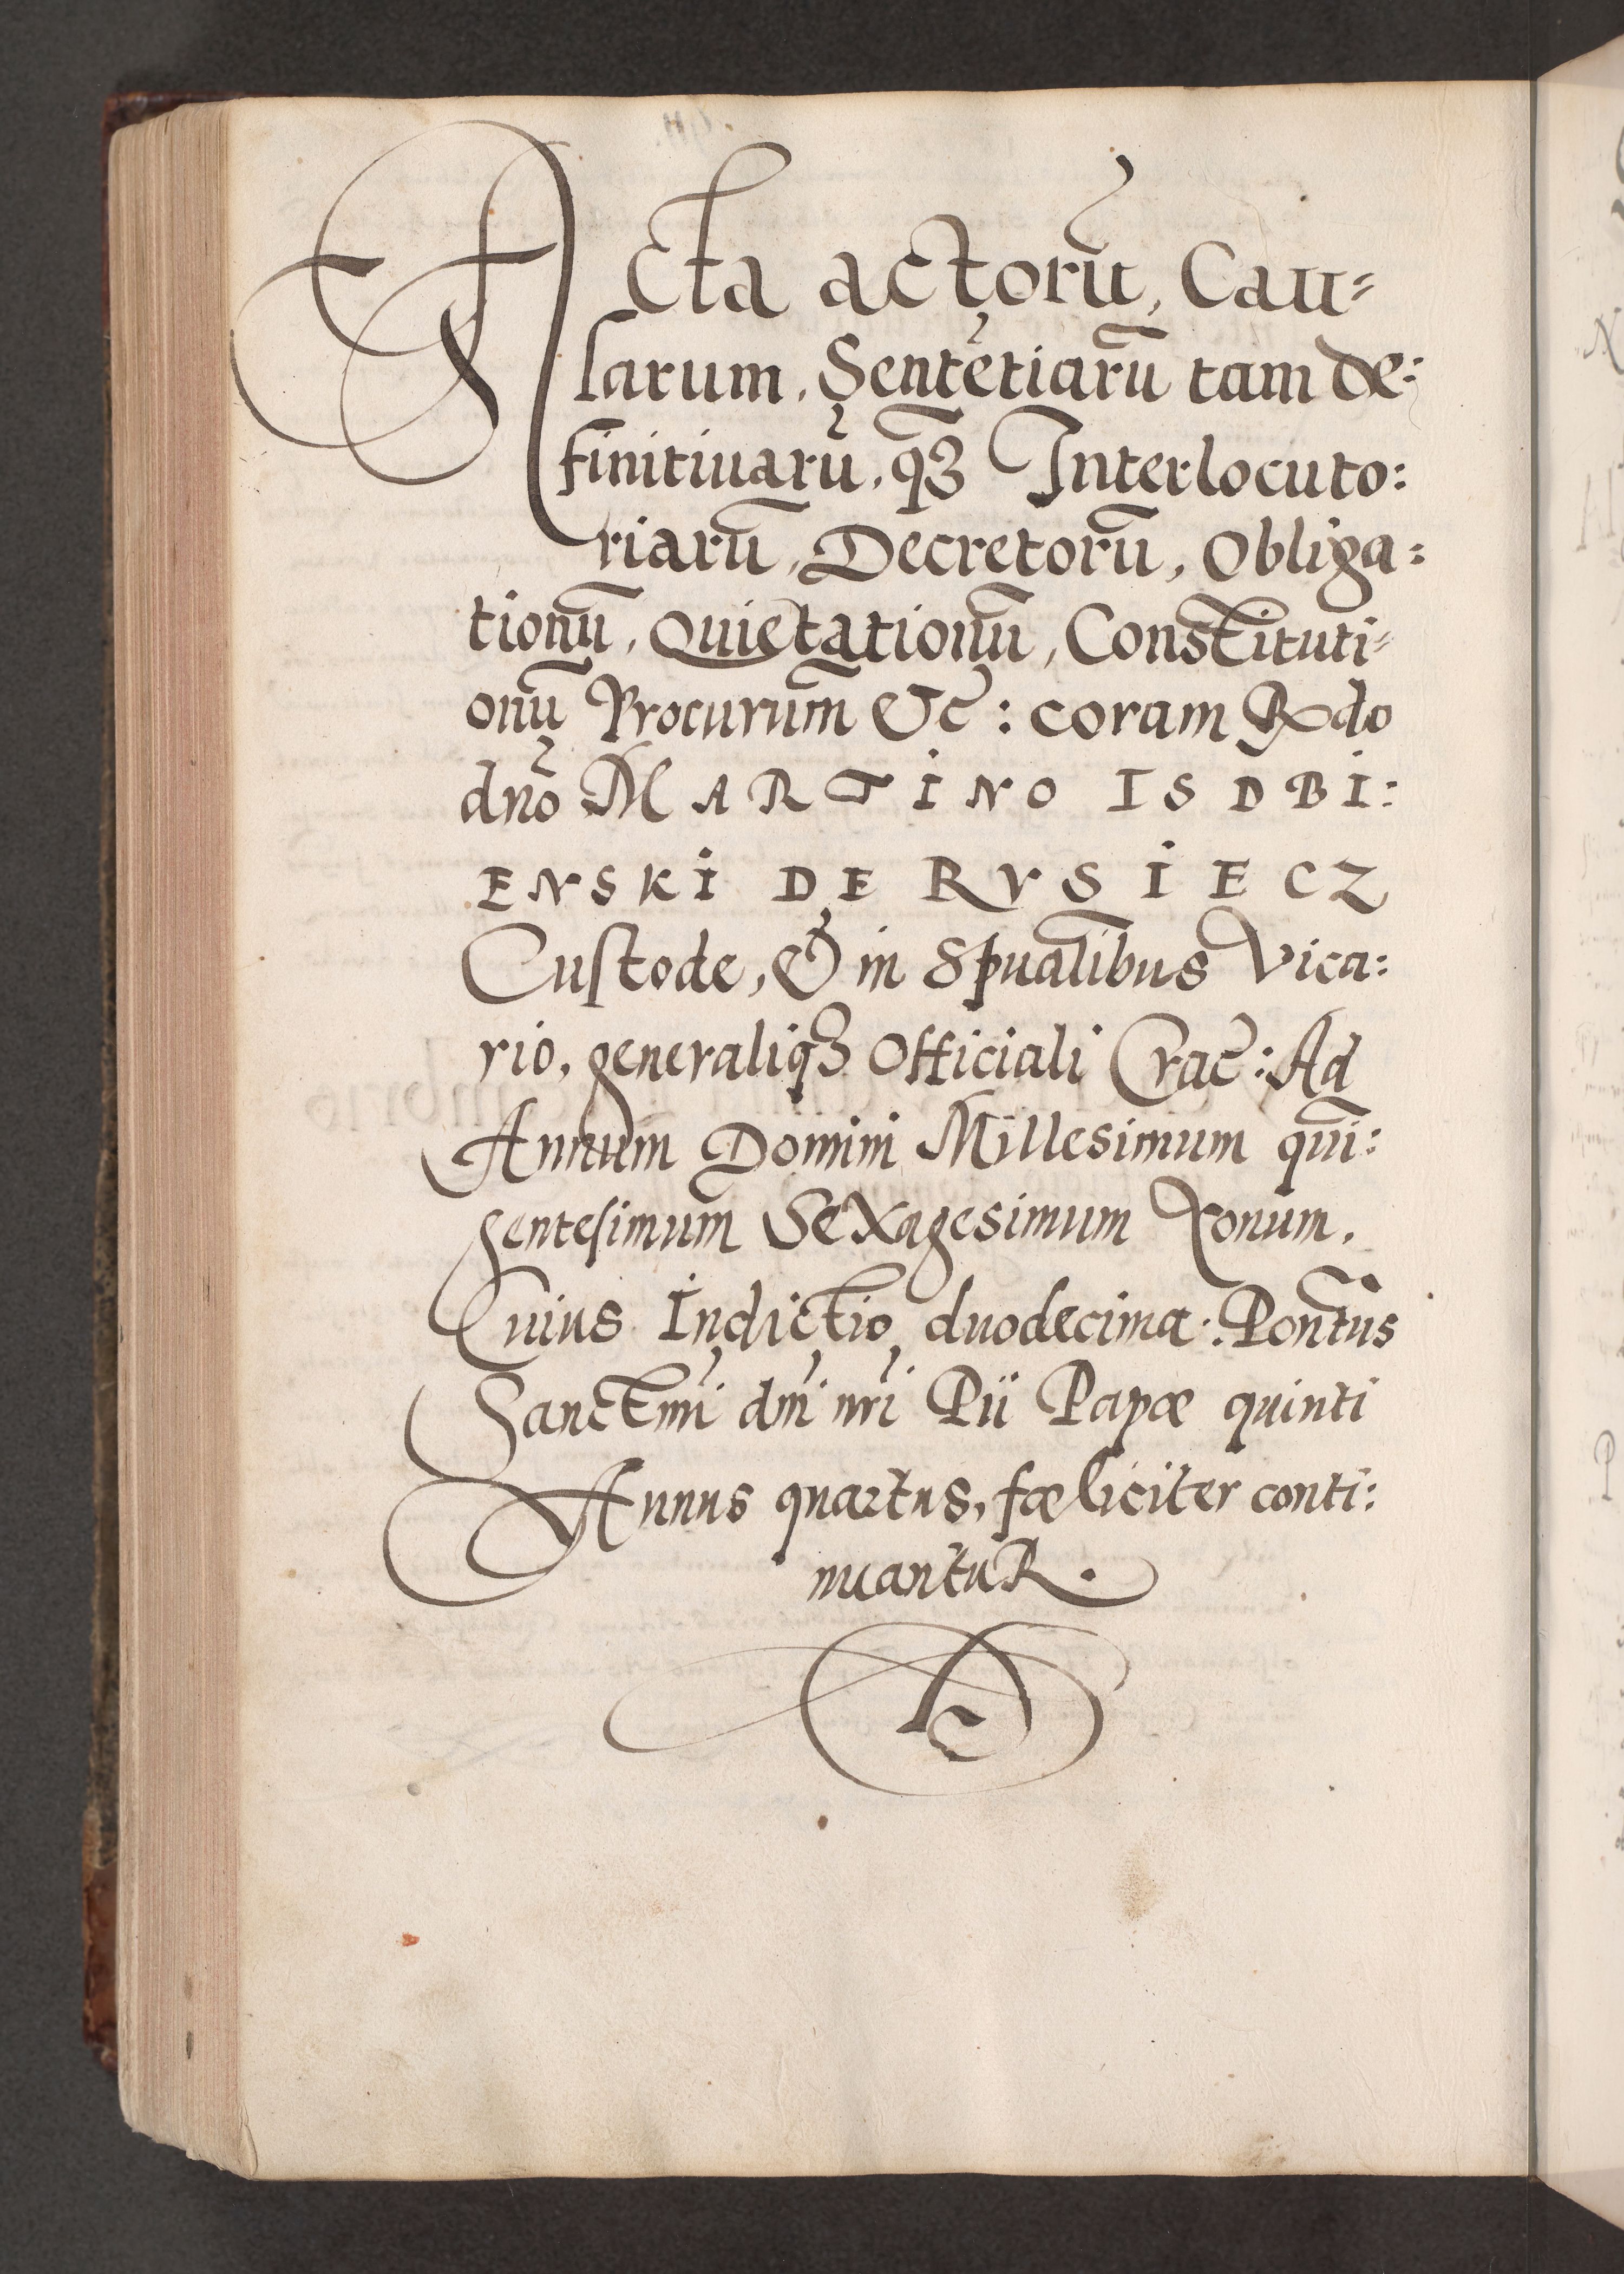 Acta actorũ, Cau=
sarum, Sentẽtiarũ tam de:
finitiuarũ, q̃ꝫ Interlocuto:
riarũ, Decretorũ, Obliga:
tionũ, Quietationũ, Constituti=
onũ Procurum̃ &c̃: coram Rdo
dño MARTINO ISDBI:
ENSKI DE RVSIECZ
Custode, & in Spualĩbus Vica:
rio, generaliqꝫ Officiali Crac̃: Ad
Annum Domini Millesimum qui̅:
gentesimum Sexagesimum Nonum.
Cuius Indictio duodecima: Pontũs
Sanctmi dni nri Pii Papæ quinti
Annus quartus, fœliciter conti:
nuantuR.